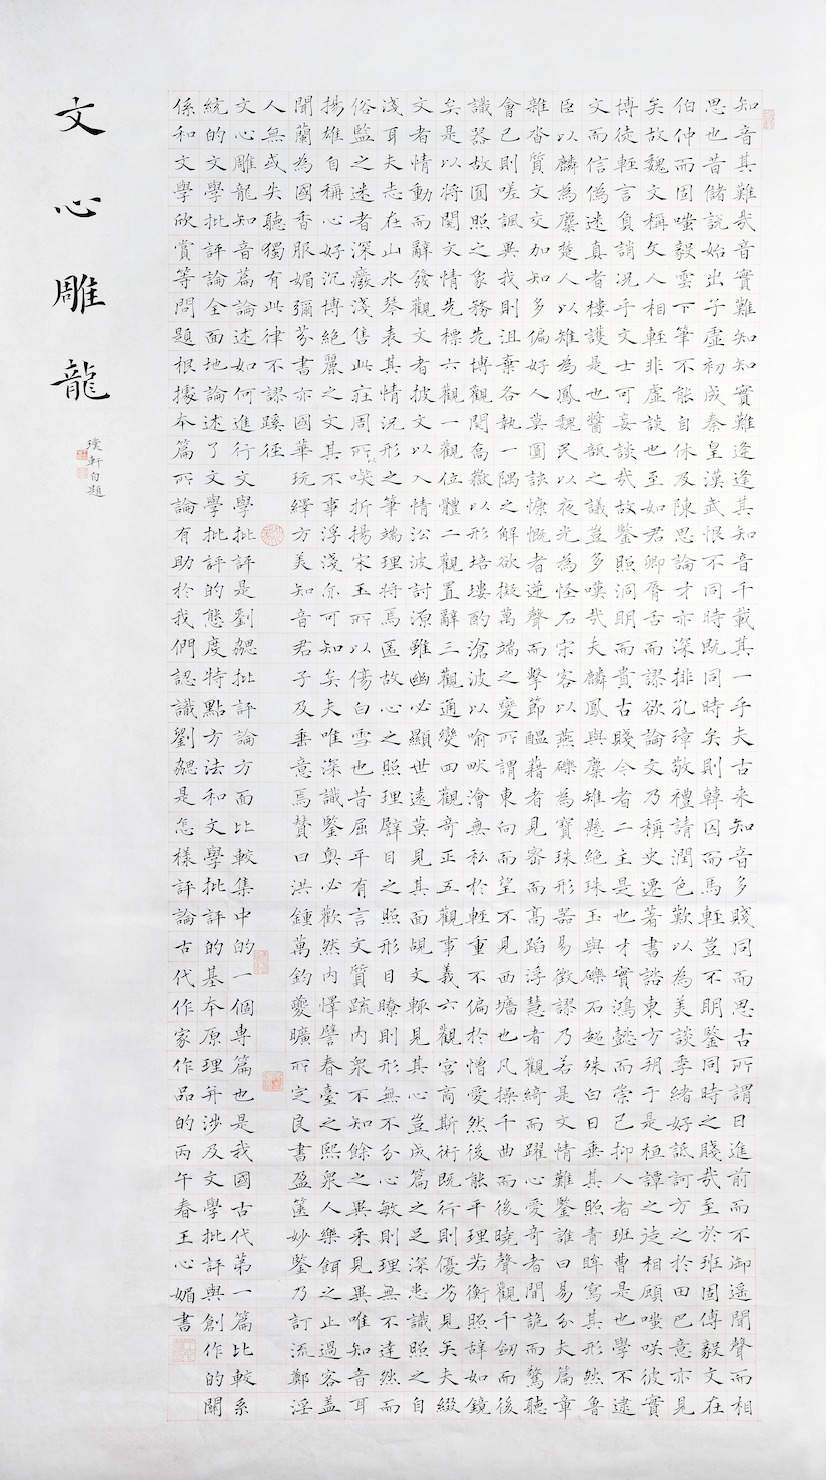 知音其難哉音實難知知實難逢逢其知音千載其一乎夫古來知音多賤同而思古所謂日進前而不御遙聞聲而相
思也昔儲說始出子虛初成秦皇漢武恨不同時既同時矣則韓囚而馬輕豈不明鑒同時之賤哉至於班固傅毅文在
伯仲而固嗤毅雲下筆不能自休及陳思論才亦深排孔璋敬禮請潤色歎以為美談季緒好詆訶方之於田巴意亦見
矣故魏文稱文人相輕非虛談也至如君卿脣舌而謬欲論文乃稱史遷著書諮東方朔于是桓譚之徒相顧嗤咲彼實
博徒輕言負誚況乎文士可妄談哉故鑒照洞明而貴古賤今者二主是也才實鴻懿而崇己抑人者班曹是也學不逮
文而信偽迷真者樓護是也醬瓿之議豈多嘆哉夫麟鳳與麏雉懸絕珠玉與礫石超殊白日垂其照青眸寫其形然魯
臣以麟為麏楚人以雉為鳳魏民以夜光為怪石宋客以燕礫為寶珠形器易徵謬乃若是文情難鑒誰曰易分夫篇章
雜沓質文交加知多偏好人莫圓該慷慨者逆聲而擊節醞藉者見密而高蹈浮慧者觀綺而躍心愛奇者聞詭而驚聽
會己則嗟諷異我則沮棄各執一隅之解欲擬萬端之變所謂東向而望不見西墻也凡操千曲而後曉聲觀千劒而後
識器故圓照之象務先博觀閱喬嶽以形培塿酌滄波以喻畎澮無私於輕重不偏於憎愛然後能平理若衡照辭如鏡
矣是以將閱文情先標六觀一觀位體二觀置辭三觀通變四觀奇正五觀事義六觀宮商斯術既行則優劣見矣夫綴
文者情動而辭發觀文者披文以入情沿波討源雖幽必顯世遠莫見其面覘文輒見其心豈成篇之足深患識照之自
淺耳夫志在山水琴表其情況形之筆端理將焉匿故心之照理譬目之照形目瞭則形無不分心敏則理無不達然而
俗監之迷者深廢淺售此莊周所咲折揚宋玉所以傷白雪也昔屈平有言文質疏內眾不知餘之異采見異唯知音耳
揚雄自稱心好沉博絕麗之文其不事浮淺亦可知矣夫唯深識鑒奧必歡然內懌譬春臺之熙眾人樂餌之止過客蓋
聞蘭為國香服媚彌芬書亦國華玩繹方美知音君子及垂意焉贊曰洪鍾萬鈞夔曠所定良書盈篋妙鑒乃訂流鄭淫
人無或失聽獨有此律不謬蹊徑
文心雕龍知音篇論述如何進行文學批評是劉勰批評論方面比較集中的一個專篇也是我國古代第一篇比較系
統的文學批評論全面地論述了文學批評的態度特點方法和文學批評的基本原理并涉及文學批評與創作的關
係和文學欣賞等問題根據本篇所論有助於我們認識劉勰是怎樣評論古代作家作品的丙午春王心媚書
文心雕龍
璞軒自題